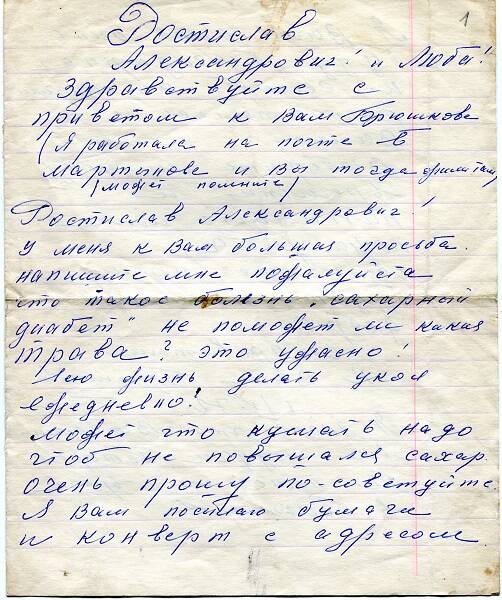 1
Ростислав
Александрович! и Люба!
Здравствуйте с
приветом к Вам Брюшкове
(Я работала на почте в
Мартынове и Вы тогда жили там
(может помните)
Ростислав Александрович!
У меня к Вам большая просьба.
напишите мне пожалуйста
что такое болезнь „сахарный
диабет" не поможет ли какая
трава? это ужасно!
Всю жизнь делать укол
ежедневно!
Может что кушать надо
чтоб не повышался сахар.
очень прошу по-советуйте.
Я Вам посылаю бумаги
и конверт с адресом